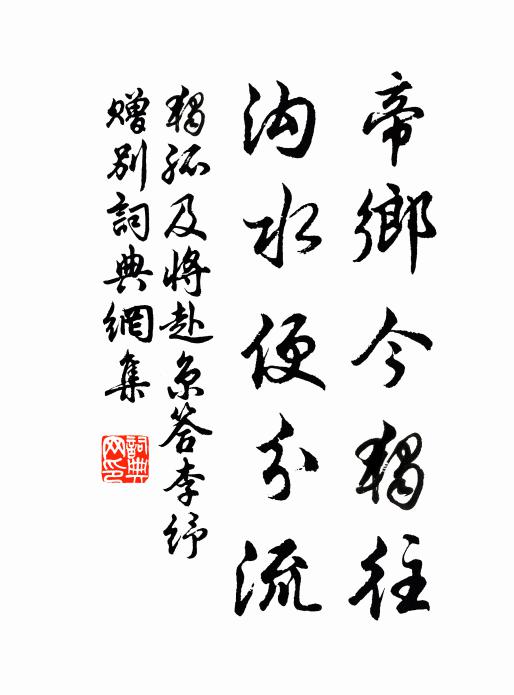 帝鄉今獨往
沟水便分流
獨孤及將赴京答李紓
贈別詞典網集
詞典
网印